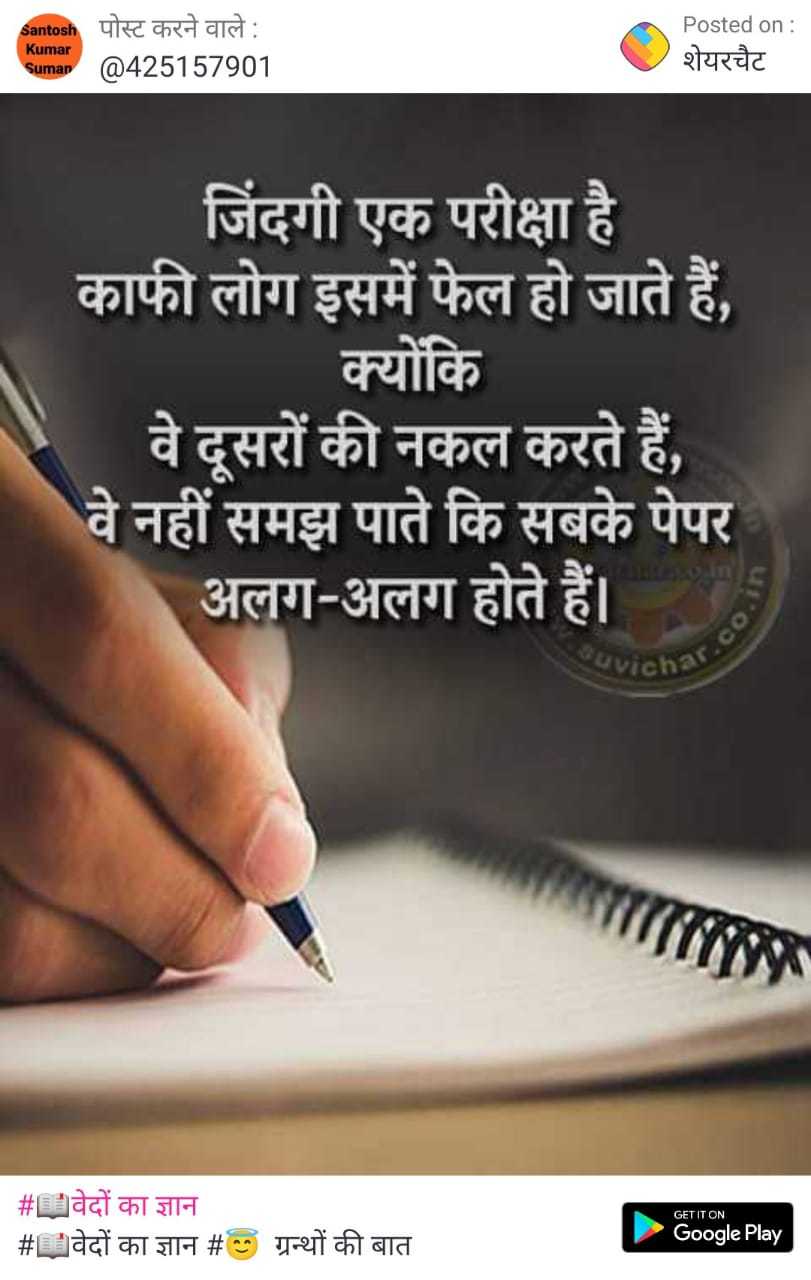 Santosh
Kumar
Suman
पोस्ट करने वाले :
@425157901
Posted on :
शेयरचैट
जिंदगी एक परीक्षा है
काफी लोग इसमें फेल हो जाते हैं,
क्योंकि
वे दूसरों की नकल करते हैं,
वे नहीं समझ पाते कि सबके पेपर
अलग-अलग होते हैं।
suvichar.co.in
#📖वेदों का ज्ञान
#📖वेदों का ज्ञान #😇 ग्रन्थों की बात
GET IT ON
Google Play